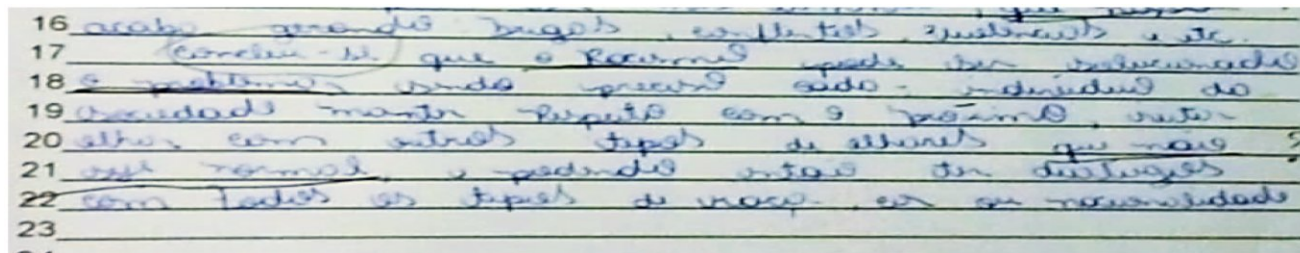 16 acaba gerando brigas, conflitos, violências e etc.
17 Conclui-se que o Racismo pode ser solucionado
18 o problema sendo preciso cada indivíduo da
19 sociedade manter respeito com o próximo, evitar
20 olhar com outros tipos de olhares que não ?
21 seje normal, e podendo então ter
22 com todos os tipos de raça, cor ou nacionalidade
23